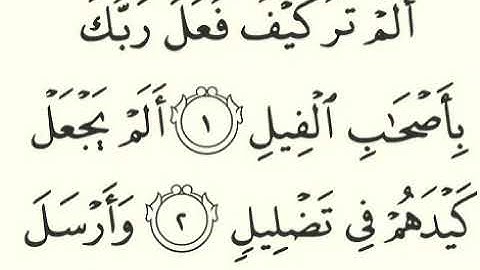 أَلَمْ تَرَ كَيْفَ فَعَلَ رَبُّكَ
بِأَصْحَٰبِ ٱلْفِيلِ ١ أَلَمْ يَجْعَلْ
كَيْدَهُمْ فِي تَضْلِيلٍ ٢ وَأَرْسَلَ